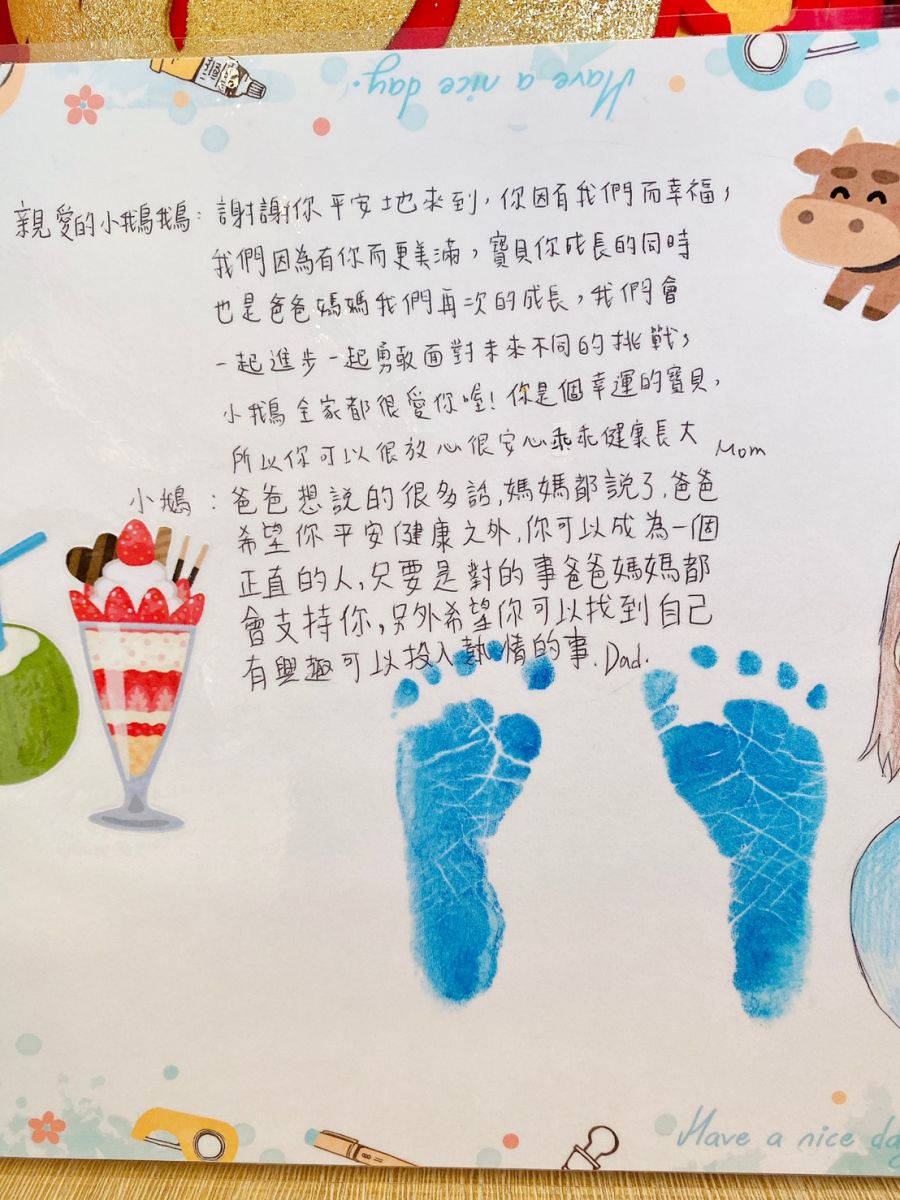 Have a nice day.
親愛的小鵝鵝：謝謝你平安地來到，你因有我們而幸福，
我們因為有你而更美滿，寶貝你成長的同時
也是爸爸媽媽我們再次的成長，我們會
一起進步一起勇敢面對未來不同的挑戰，
小鵝全家都很愛你喔！你是個幸運的寶貝，
所以你可以很放心很安心乖乖健康長大 Mom
小鵝：爸爸想說的很多話，媽媽都說了，爸爸
希望你平安健康之外，你可以成為一個
正直的人，只要是對的事爸爸媽媽都
會支持你，另外希望你可以找到自己
有興趣可以投入熱情的事．Dad．
Have a nice day